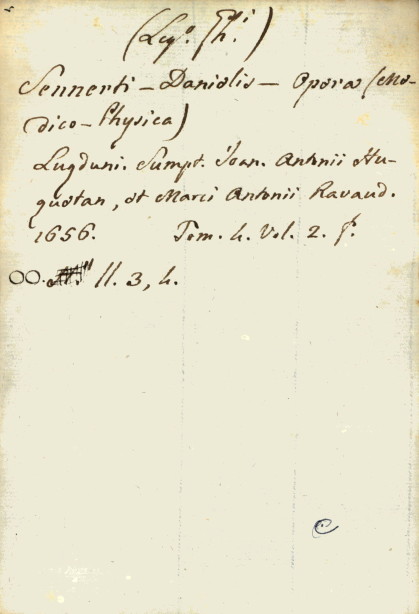 Sennerti – Danielis – Opera (Me-
dico-Physica)
Lugduni. Sumpt. Ioan. Antonii Hu-
guetan, et Marci Antonii Ravaud.
1656. Tom. 4. Vol. 2. f.
OO. ll. 3, 4.
C